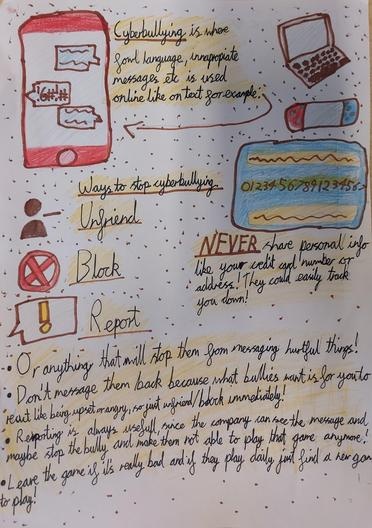 Cyberbullying is where
foul language, innapropiate
messages etc is used
online like on text for example.
!6#!#
Ways to stop cyberbullying
Unfriend
Block
Report
0123456789123456
NEVER share personal info
like your credit card number or
address! They could easily track
you down!
• Or anything that will stop them from messaging hurtful things!
• Don't message them back because what bullies want is for you to
react like being upset or angry, so just unfriend/block immediately!
• Reporting is always usefull, since the company can see the message and
maybe stop the bully, and make them not able to play that game anymore!
• Leave the game if it's really bad and if they play daily just find a new game
to play!